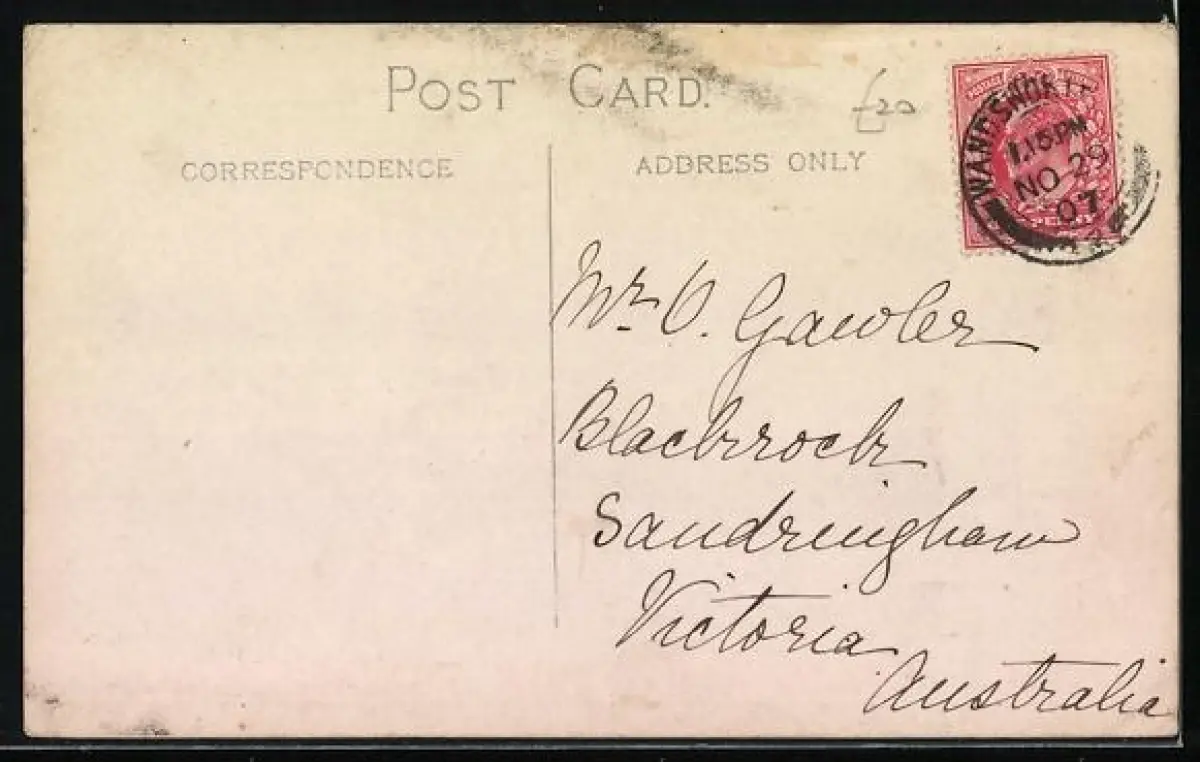 POST CARD.
£20
CORRESPONDENCE
ADDRESS ONLY
WANDSWORTH
1.15PM
NO 29
07
PENNY
Mr. O. Gawler
Blackrock
Sandringham
Victoria
Australia